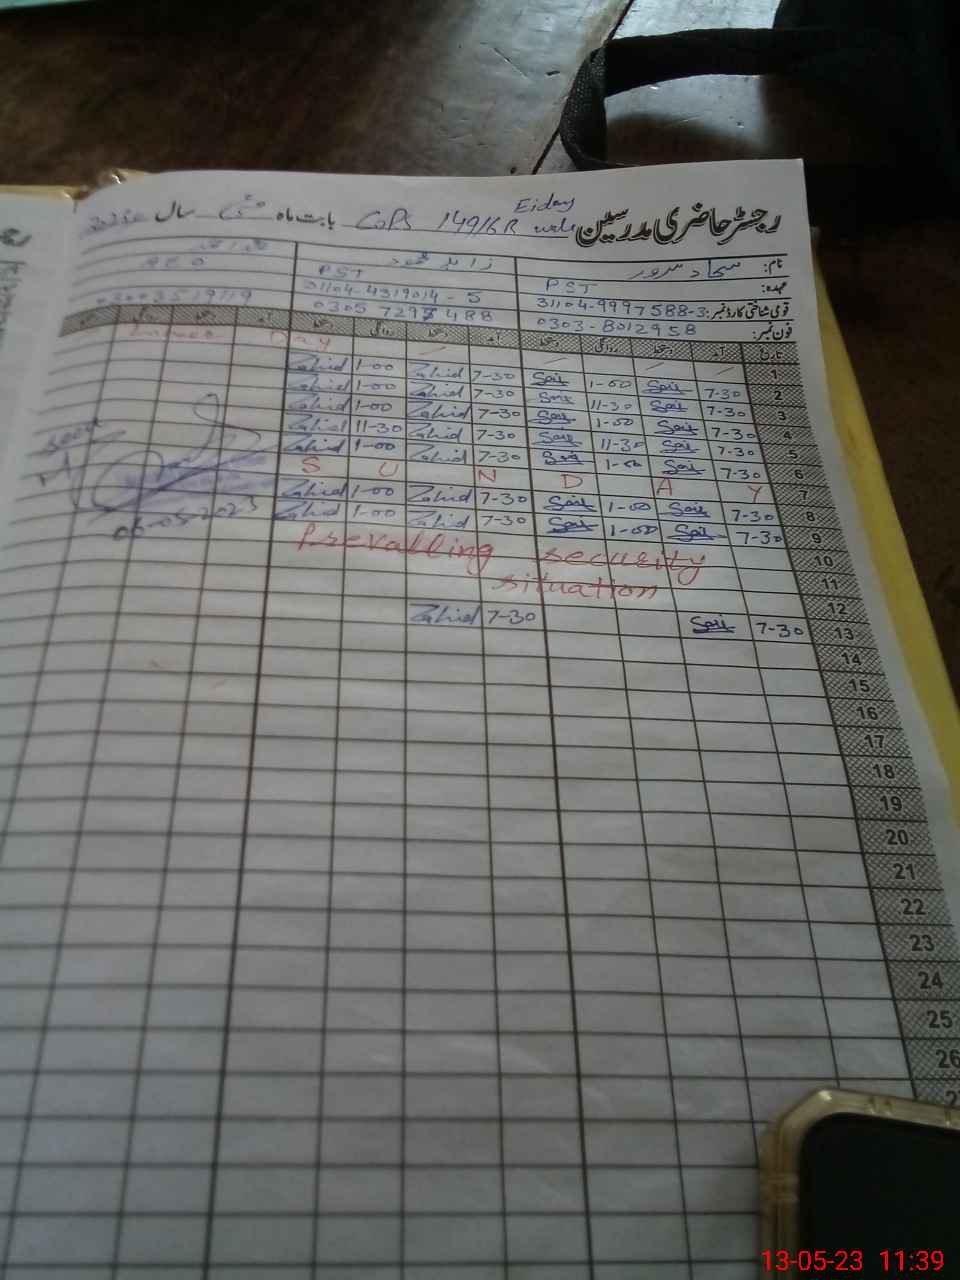 Eiday
رجسٹر حاضری مدرسین GGPS 149/6R بابت ماہ مئی سال
نام: سجاد سرور زاہد محمود
عہدہ: PST PST AEO
قومی شناختی کارڈ نمبر: 31104-9997588-3 31104-4319014-5
فون نمبر: 0303-8012958 0305 7297488 03003519119
تاریخ آمد دستخط روانگی دستخط آمد دستخط روانگی دستخط آمد دستخط روانگی دستخط
1 Labour Day
2 7-30 1-00 7-30 Zahid 1-00 Zahid
3 7-30 11-30 7-30 Zahid 1-00 Zahid
4 7-30 1-00 7-30 Zahid 1-00 Zahid
5 7-30 11-30 7-30 Zahid 11-30 Zahid
6 7-30 1-00 7-30 Zahid 1-00 Zahid
7 S U N D A Y
8 7-30 1-00 7-30 Zahid 1-00 Zahid
9 7-30 1-00 7-30 Zahid 1-00 Zahid
seen
06-05-2023
10 Prevailing security
11 situation
12
13 7-30 7-30 Zahid
14
15
16
17
18
19
20
21
22
23
24
25
26
13-05-23 11:39